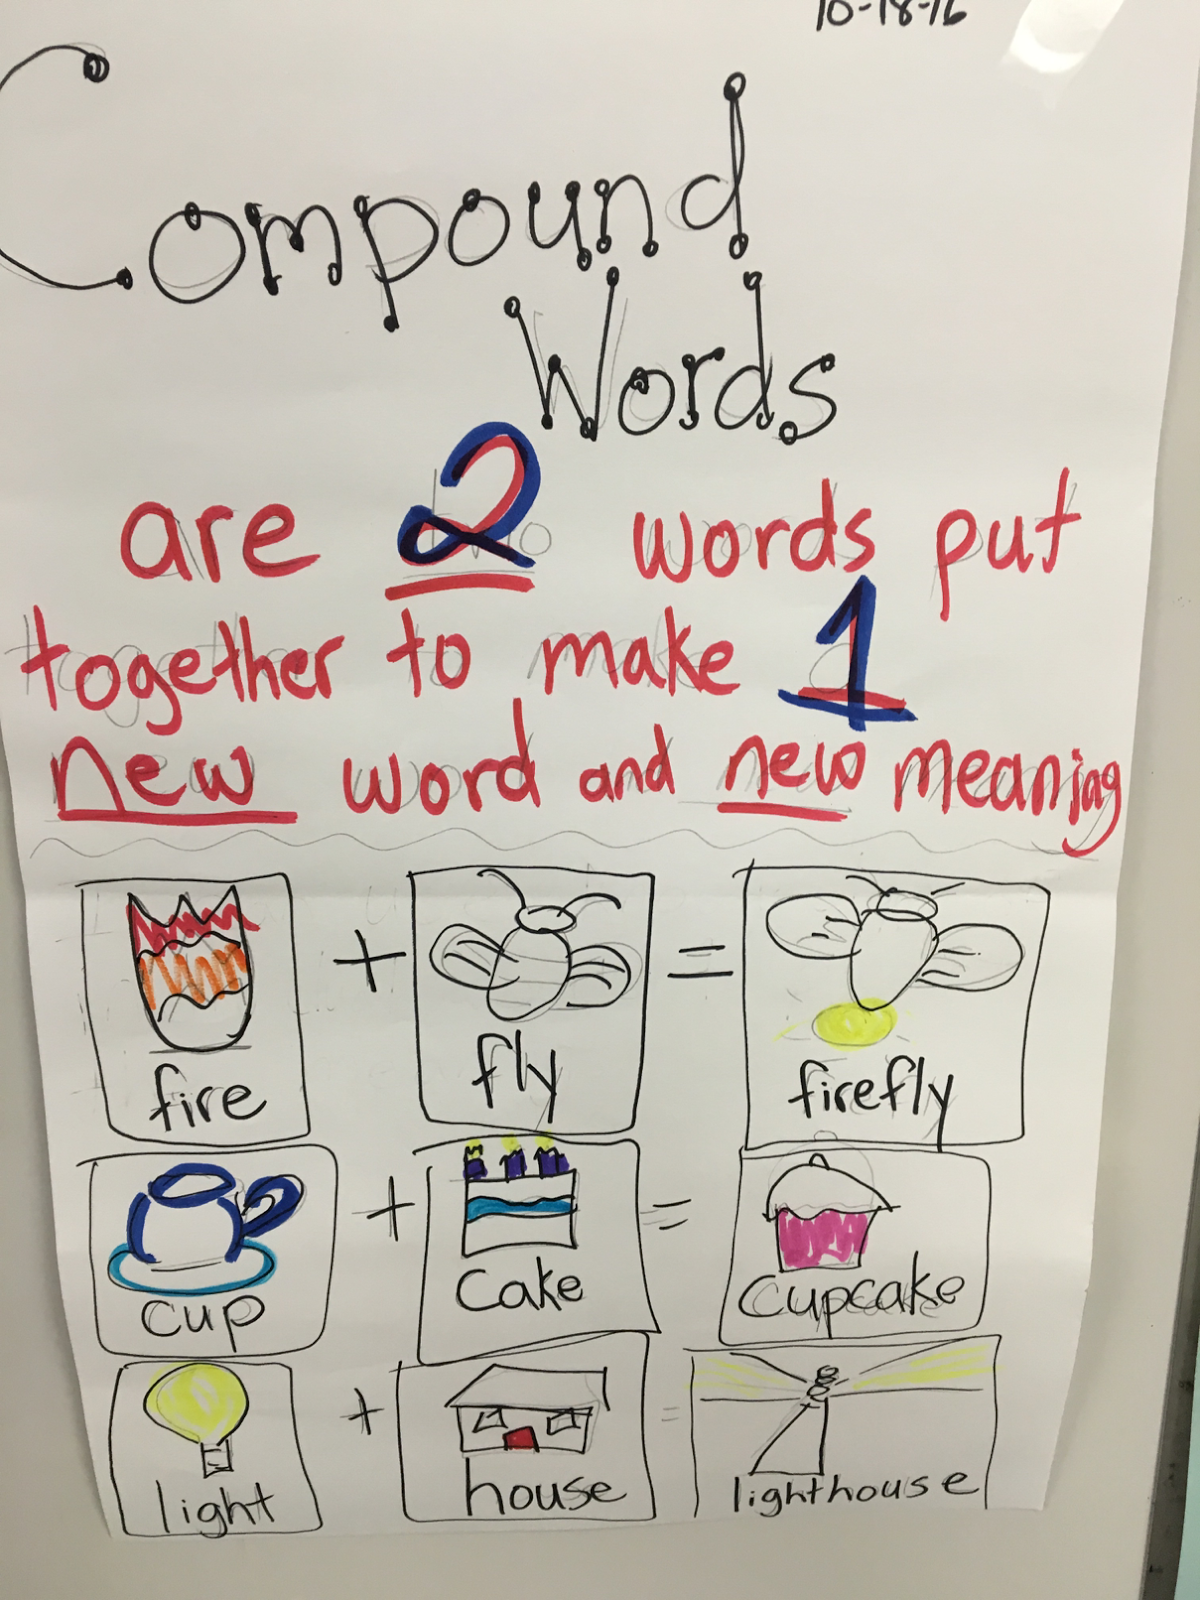 10-18-16
Compound
Words
are 2 words put
together to make 1
new word and new meaning
fire + fly = firefly
cup + cake = cupcake
light + house = lighthouse